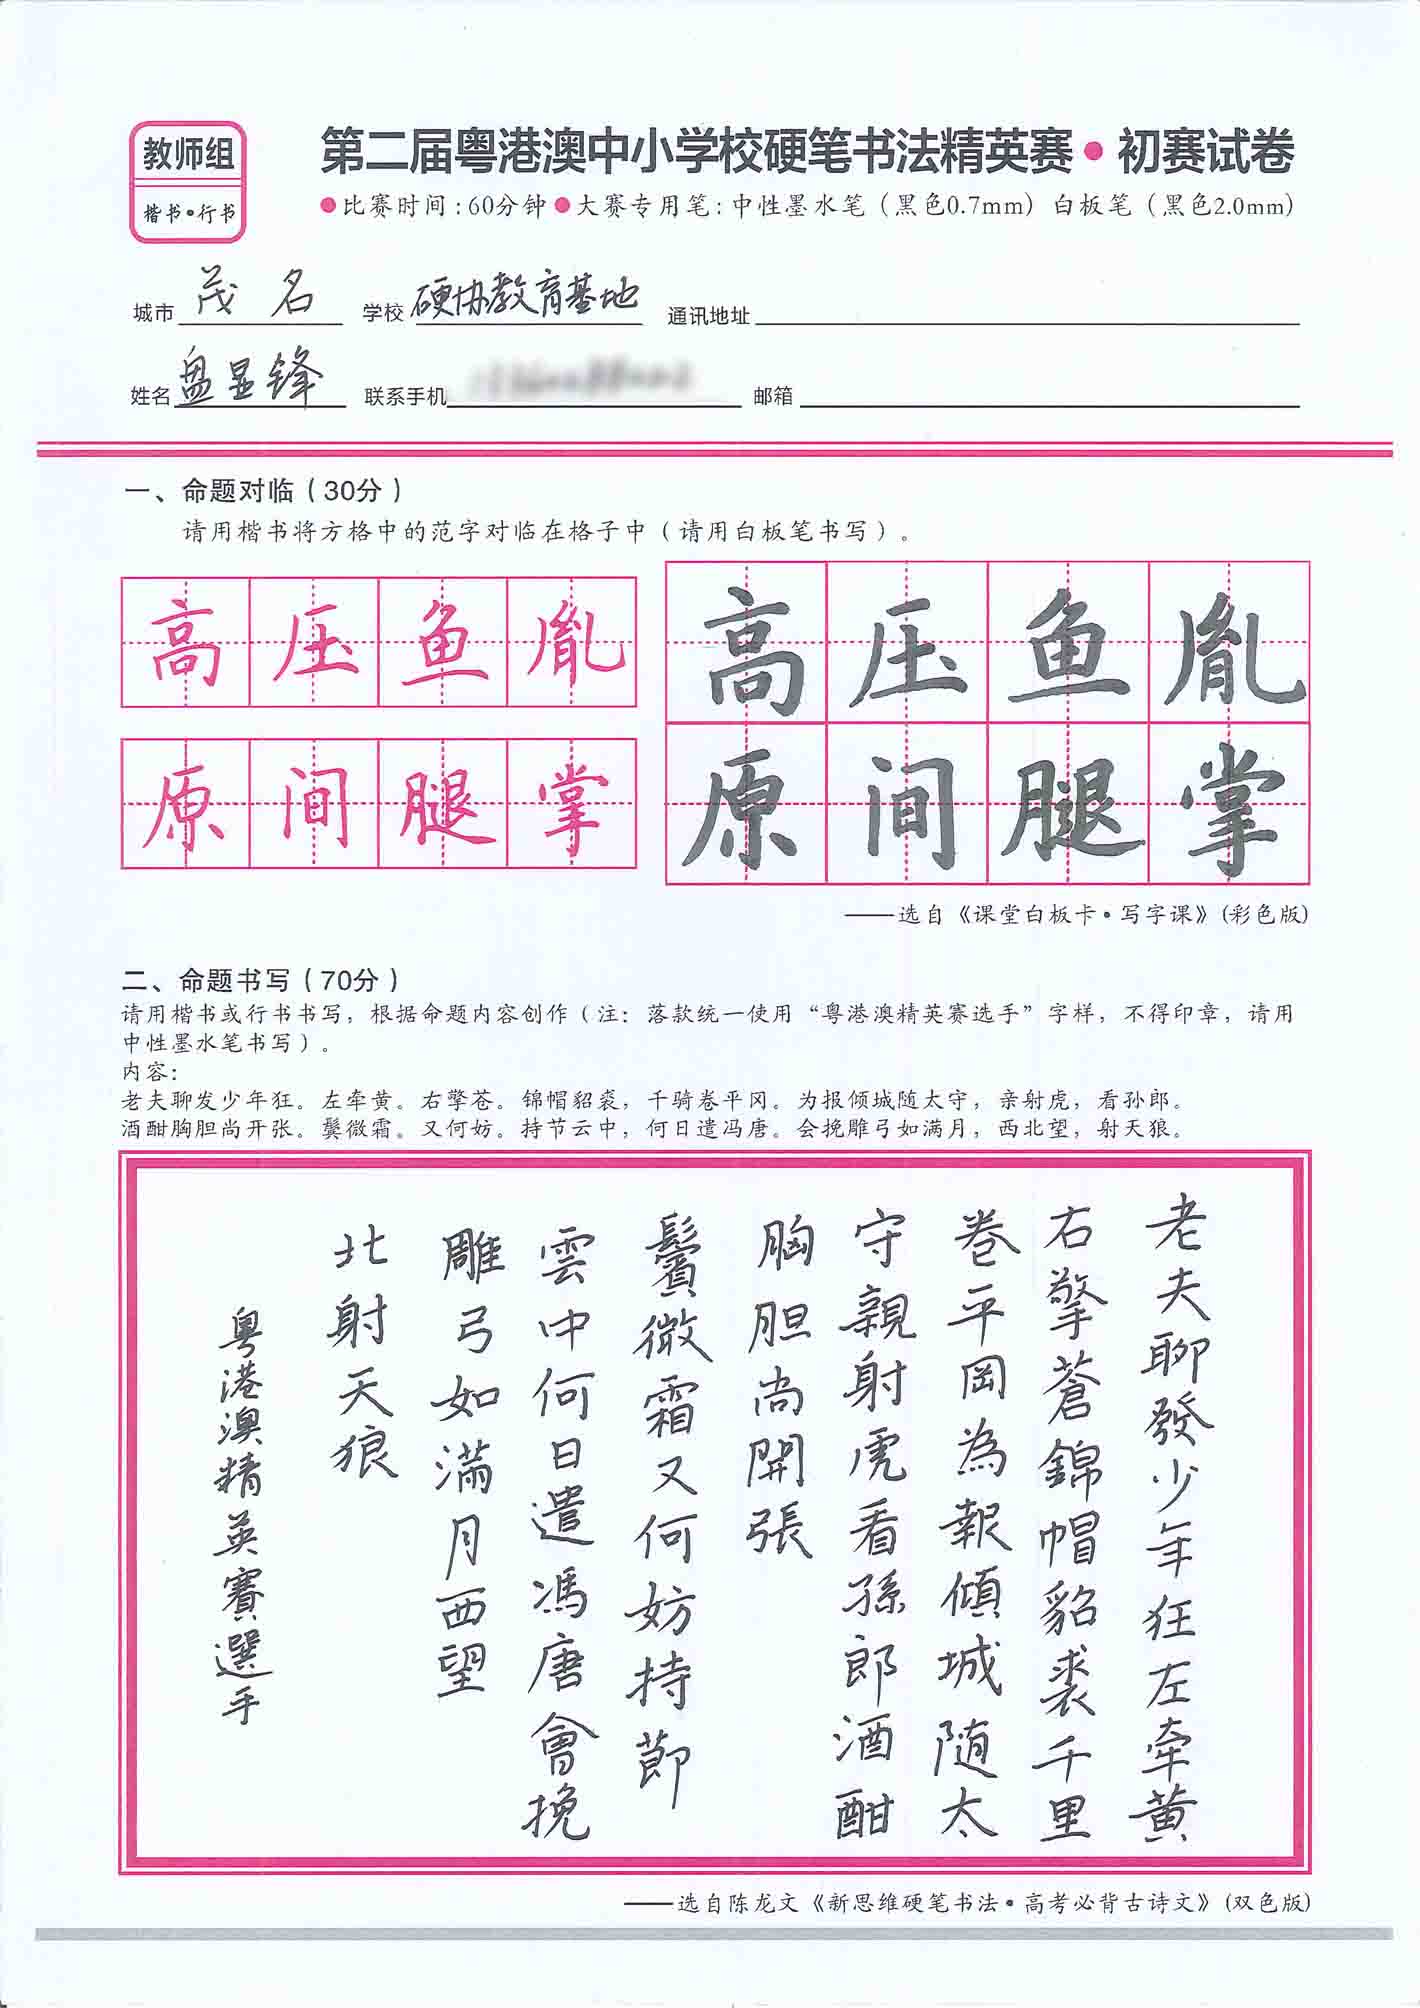 教师组
楷书•行书
第二届粤港澳中小学校硬笔书法精英赛•初赛试卷
●比赛时间：60分钟●大赛专用笔：中性墨水笔（黑色0.7mm）白板笔（黑色2.0mm）
城市 茂名 学校 硬协教育基地 通讯地址
姓名 盘显锋 联系手机 邮箱
一、命题对临（30分）
请用楷书将方格中的范字对临在格子中（请用白板笔书写）。
高压鱼胤
原间腿掌
高压鱼胤
原间腿掌
——选自《课堂白板卡•写字课》(彩色版)
二、命题书写（70分）
请用楷书或行书书写，根据命题内容创作（注：落款统一使用“粤港澳精英赛选手”字样，不得印章，请用
中性墨水笔书写）。
内容：
老夫聊发少年狂。左牵黄。右擎苍。锦帽貂裘，千骑卷平冈。为报倾城随太守，亲射虎，看孙郎。
酒酣胸胆尚开张。鬓微霜。又何妨。持节云中，何日遣冯唐。会挽雕弓如满月，西北望，射天狼。
老夫聊發少年狂左牵黄
右擎蒼錦帽貂裘千里
卷平岡為報傾城随太
守親射虎看孫郎酒酣
胸胆尚開張
鬢微霜又何妨持節
雲中何日遣馮唐會挽
雕弓如滿月西望
北射天狼
粤港澳精英賽選手
——选自陈龙文《新思维硬笔书法•高考必背古诗文》(双色版)